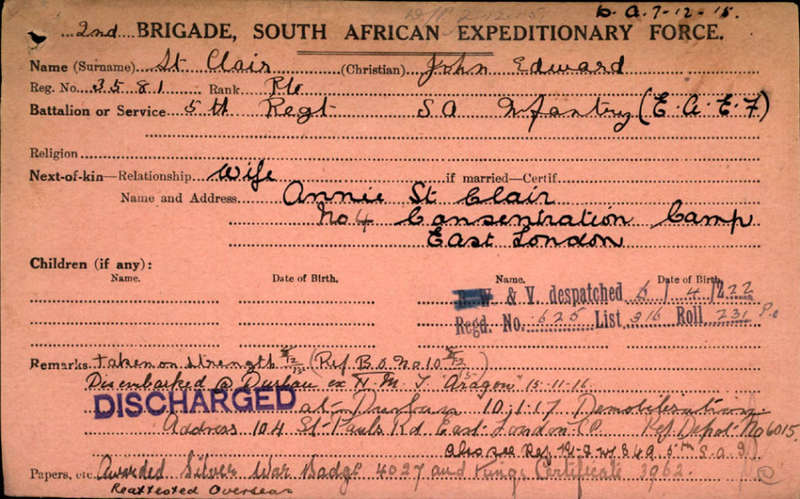 D.A. 7-12-15.
2nd BRIGADE, SOUTH AFRICAN EXPEDITIONARY FORCE.
Name (Surname) St Clair (Christian) John Edward
Reg. No. 3581 Rank Pte
Battalion or Service 5th Regt S A Infantry (E.A.E.F)
Religion
Next-of-kin—Relationship Wife if married—Certif.
Name and Address Annie St Clair
No 4 Consentration Camp
East London
Children (if any):
Name. Date of Birth. Name. Date of Birth.
& V. despatched 6/4/22
Regd. No. 625 List 316 Roll 231
Remarks taken on strength (Ref B.O. No 10
Disembarked @ Durban ex H.M.T. "Aragon" 15-11-16
DISCHARGED at Durban 10.1.17 Demobilisation
Address 104 St Pauls Rd East London CP. Ref. Depot No 6015
also see Ref 5th S.A.I.
Papers, etc. Awarded Silver War Badge 4027 and Kings Certificate 3962.
Reattested Overseas